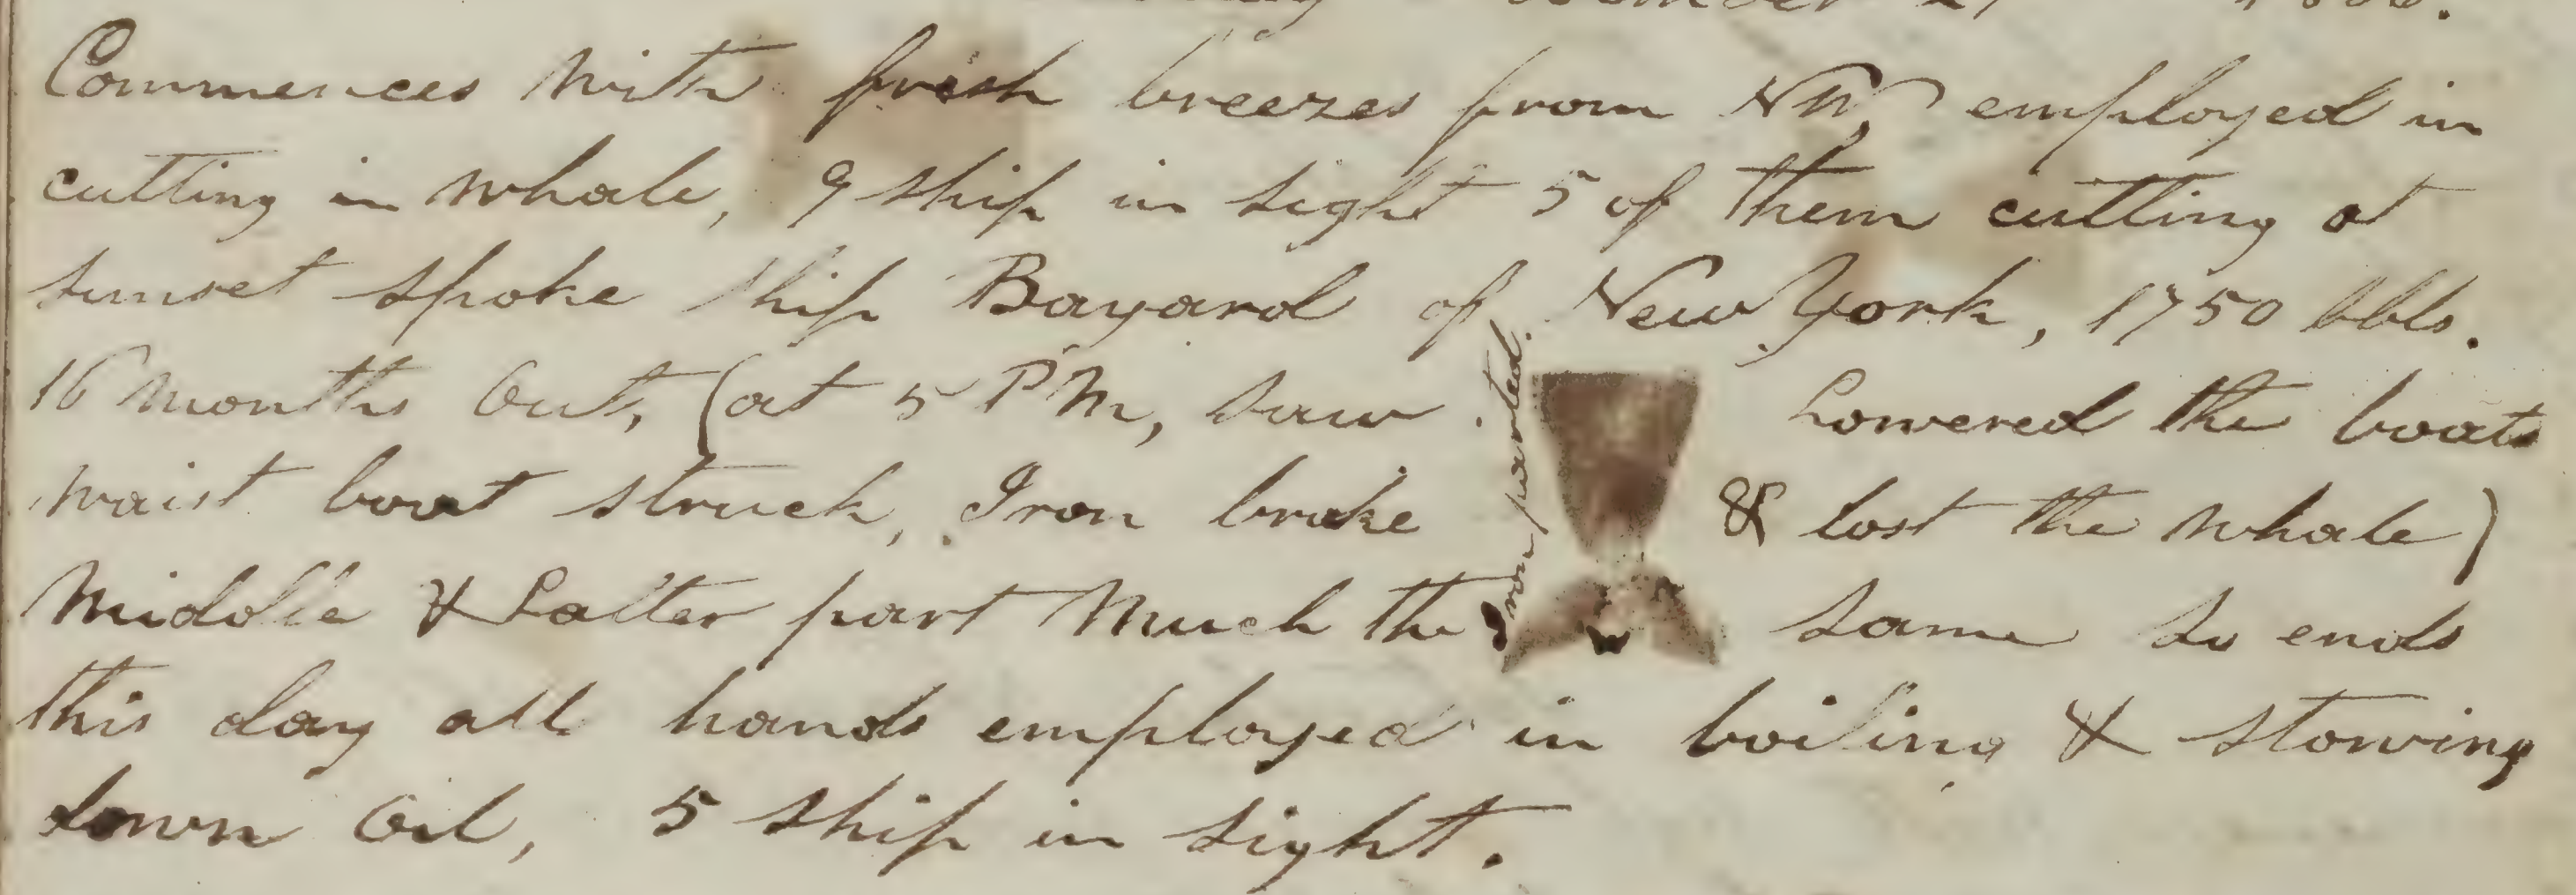 Commences with fresh breezes from NW, employed in
cutting in whale, 9 ship in sight 5 of them cutting at
sunset spoke ship Bayard of New York, 1750 bbls.
16 months out, (at 5 PM, saw Lowered the boats
waist boat struck, Iron broke & lost the whale)
Iron parted.
Middle & Latter part Much the same so ends
this day all hands employed in boiling & stowing
down Oil, 5 ship in sight.